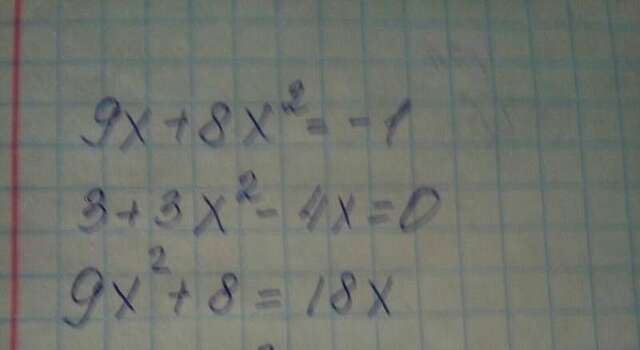 9x+8x²=-1
3+3x²-4x=0
9x²+8=18x